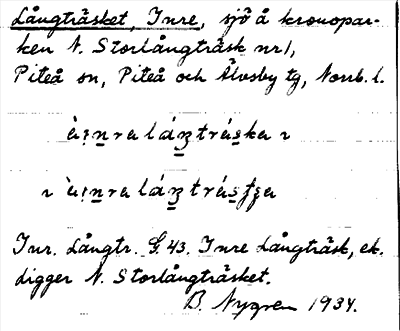 Långträsket, Inre, sjö å kronopar-
ken N. Storlångträsk nr 1,
Piteå sn, Piteå och Älvsby tg, Norrb. l.
Inr. Långtr. G. 43. Inre Långträsk, ek.
ligger N. Storlångträsket.
B. Nygren 1934.